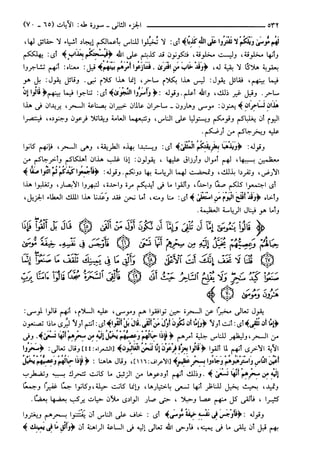 ٥٣٢ الجزء الثاني - سورة طه: الآيات (٦٥ - ٧٠)
لَهُم مُّوسَىٰ وَيْلَكُمْ لَا تَفْتَرُوا۟ عَلَى ٱللَّهِ كَذِبًا﴾ أي: لا تُخيلوا للناس بأعمالكم إيجاد أشياء لا حقائق لها،
وأنها مخلوقة، وليست مخلوقة، فتكونون قد كذبتم على الله ﴿فَيُسْحِتَكُم بِعَذَابٍ﴾ أي: يهلككم
بعقوبة هلاكًا لا بقية له، ﴿وَقَدْ خَابَ مَنِ ٱفْتَرَىٰ. فَتَنَٰزَعُوٓا۟ أَمْرَهُم بَيْنَهُمْ﴾ قيل: معناه: أنهم تشاجروا
فيما بينهم، فقائل يقول: ليس هذا بكلام ساحر، إنما هذا كلام نبي. وقائل يقول: بل هو
ساحر. وقيل غير ذلك، والله أعلم. وقوله: ﴿وَأَسَرُّوا۟ ٱلنَّجْوَىٰ﴾ أي: تناجوا فيما بينهم ﴿قَالُوٓا۟ إِنْ
هَٰذَٰنِ لَسَٰحِرَٰنِ﴾ يعنون: موسى وهارون - ساحران عالمان خبيران بصناعة السحر، يريدان في هذا
اليوم أن يغلباكم وقومكم ويستوليا على الناس، وتتبعهما العامة ويقاتلا فرعون وجنوده، فينتصرا
عليه ويخرجاكم من أرضكم.
وقوله: ﴿وَيَذْهَبَا بِطَرِيقَتِكُمُ ٱلْمُثْلَىٰ﴾ أي: ويستبدا بهذه الطريقة، وهي السحر، فإنهم كانوا
معظمين بسببها، لهم أموال وأرزاق عليها ، يقولون: إذا غلب هذان أهلكاكم وأخرجاكم من
الأرض، وتفردا بذلك، وتمحضت لهما الرياسة بها دونكم. وقوله: ﴿فَأَجْمِعُوا۟ كَيْدَكُمْ ثُمَّ ٱئْتُوا۟ صَفًّا﴾
أي اجتمعوا كلكم صفًّا واحدًا، وألقوا ما في أيديكم مرة واحدة، لتبهروا الأبصار، وتغلبوا هذا
وأخاه، ﴿وَقَدْ أَفْلَحَ ٱلْيَوْمَ مَنِ ٱسْتَعْلَىٰ﴾ أي: منا ومنه، أما نحن فقد وَعَدَنا هذا الملك العطاء الجزيل،
وأما هو فينال الرياسة العظيمة.
يقول تعالى مخبرًا عن السحرة حين توافقوا هم وموسى، عليه السلام، أنهم قالوا لموسى:
﴿إِمَّآ أَن تُلْقِىَ﴾ أي: أنت أولاً ﴿وَإِمَّآ أَن نَّكُونَ أَوَّلَ مَنْ أَلْقَىٰ. قَالَ بَلْ أَلْقُوا۟﴾ أي: أنتم أولاً لنرى ماذا تصنعون
من السحر، وليظهر للناس جلية أمرهم ﴿فَإِذَا حِبَالُهُمْ وَعِصِيُّهُمْ يُخَيَّلُ إِلَيْهِ مِن سِحْرِهِمْ أَنَّهَا تَسْعَىٰ﴾. وفي
الآية الأخرى أنهم لما ألقوا ﴿وَقَالُوا۟ بِعِزَّةِ فِرْعَوْنَ إِنَّا لَنَحْنُ ٱلْغَٰلِبُونَ﴾ [الشعراء:٤٤] وقال تعالى: ﴿سَحَرُوٓا۟
أَعْيُنَ ٱلنَّاسِ وَٱسْتَرْهَبُوهُمْ وَجَآءُو بِسِحْرٍ عَظِيمٍ﴾ [الأعراف:١١٦]، وقال هاهنا : ﴿فَإِذَا حِبَالُهُمْ وَعِصِيُّهُمْ يُخَيَّلُ
إِلَيْهِ مِن سِحْرِهِمْ أَنَّهَا تَسْعَىٰ﴾ .وذلك أنهم أودعوها من الزئبق ما كانت تتحرك بسببه وتضطرب
وتميد، بحيث يخيل للناظر أنها تسعى باختيارها، وإنما كانت حيلة، وكانوا جمًّا غفيرًا وجمعًا
كثيرا ، فألقى كل منهم عصا وحبلا ، حتى صار الوادي ملآن حيات يركب بعضها بعضًا.
وقوله : ﴿فَأَوْجَسَ فِى نَفْسِهِۦ خِيفَةً مُّوسَىٰ﴾ أي : خاف على الناس أن يُفْتَتَنوا بسحرهم ويغتروا
بهم قبل أن يلقي ما في يمينه، فأوحى الله تعالى إليه في الساعة الراهنة أن ﴿وَأَلْقِ مَا فِى يَمِينِكَ﴾